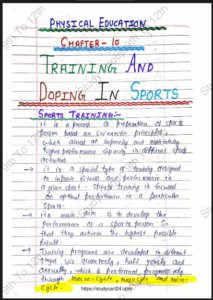 PHYSICAL EDUCATION
CHAPTER-10
TRAINING AND
DOPING IN SPORTS
SPORTS TRAINING:-
→ It is a process of preparation of sports
person based on scientific principles,
which aimed at improving and maintaining
higher performance capacity in different sports
activities.
→ it is a special type of training designed
to improve fitness and performance in
a given sport. Sports training is focused
on optimal performance in a particular
sports.
→ Its main aim is to develop the
performance of a sports person so
that they achieve the highest possible
results.
→ Training programs are developed in different
steps viz quarterly, half yearly and
annually, which is performed
through macro-cycle, meso-cycle and micro-
cycle.
https://studycart24.com
9th TO 12th